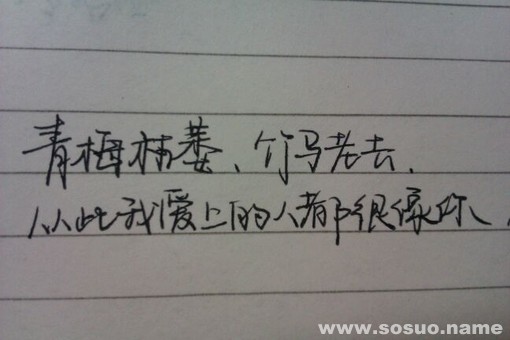 青梅枯萎、竹马老去.
从此我爱上的人都很像你.
www.sosuo.name